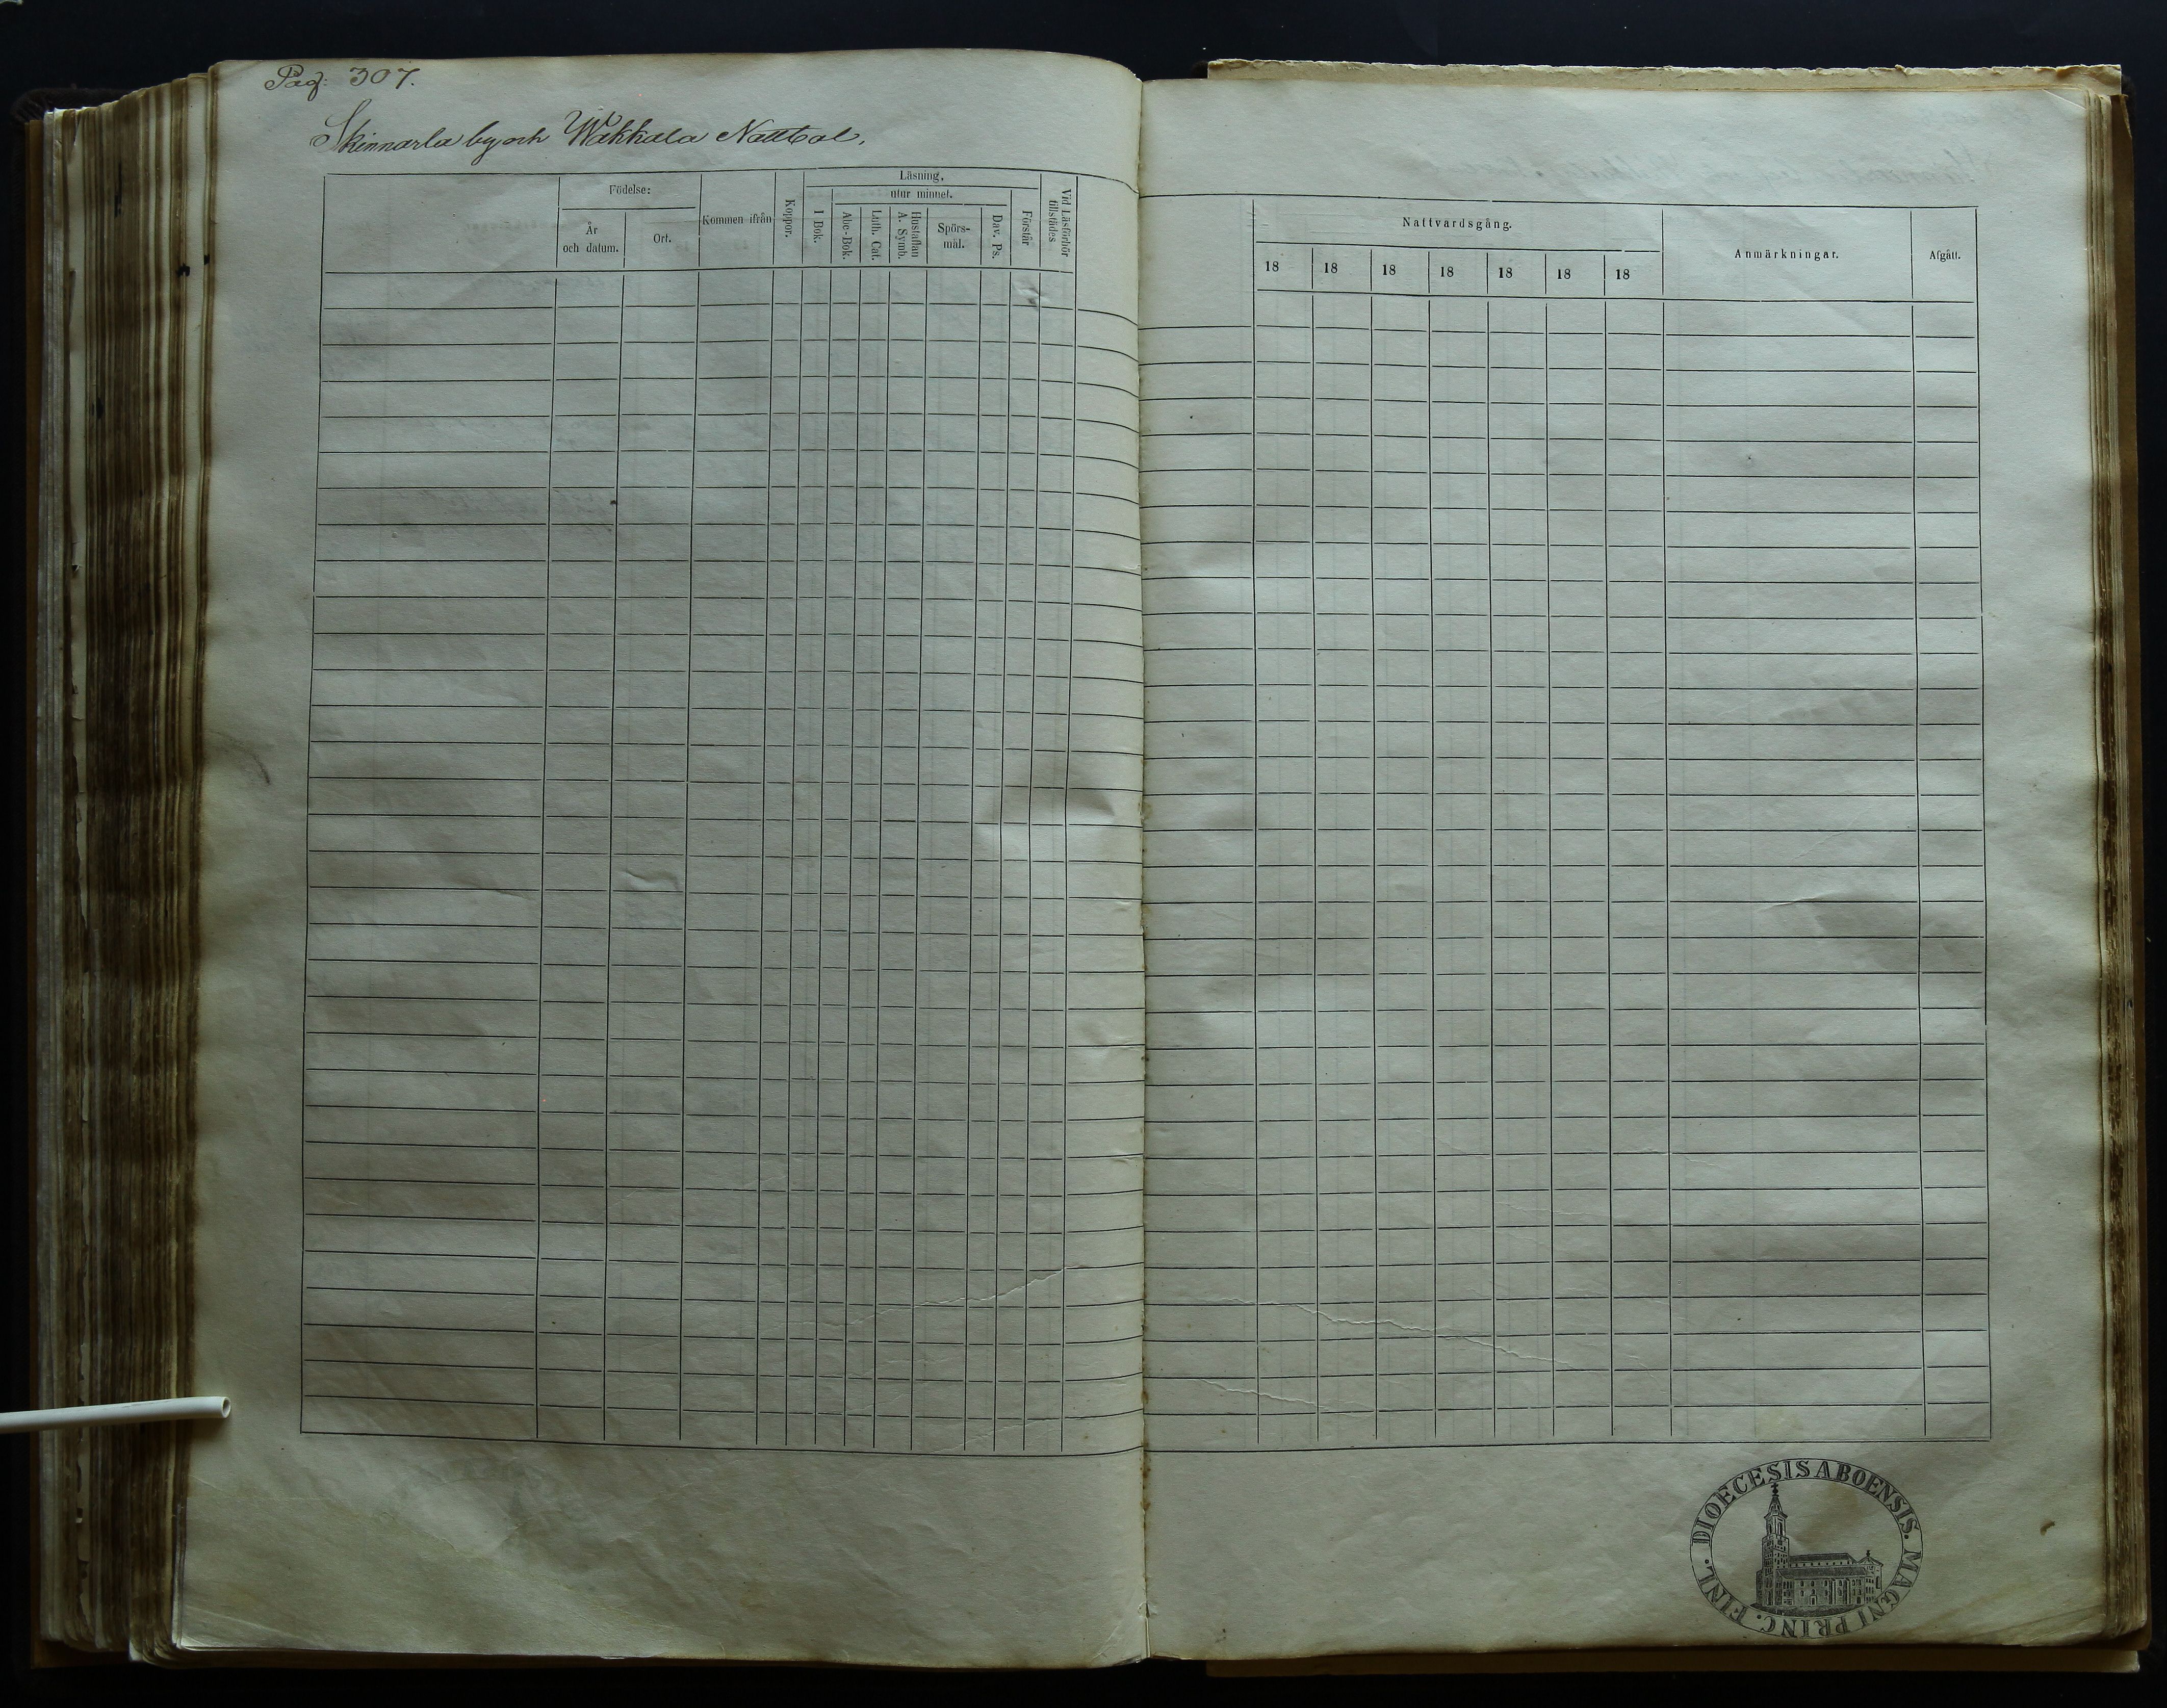 Pag: 307.
Skinnarla by och Wakkala Nattbol.
Födelse:
År
och datum.
Ort.
Kommen ifrån
Koppor.
Läsning,
utur minnet.
I Bok.
Abc-Bok.
Luth. Cat.
Hustaflan
A. Symb.
Spörs-
mål.
Dav. Ps.
Förstår
Vid Läsförhör
tillstädes
Nattvardsgång.
18 18 18 18 18 18 18
Anmärkningar.
Afgått.
DIOECESIS ABOENSIS. MAGNI PRINC. FINL.